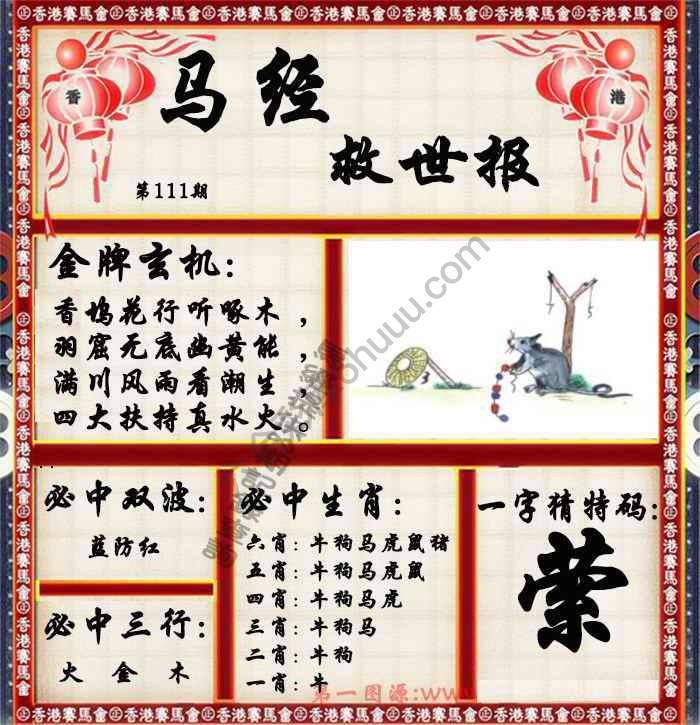 香港賽馬會
香
港
马经
救世报
第111期
金牌玄机：
香坞花行听啄木，
羽窟无底幽黄能，
满川风雨看潮生，
四大扶持真水火。
必中双波：
蓝防红
必中三行：
火 金 木
必中生肖：
六肖：牛狗马虎鼠猪
五肖：牛狗马虎鼠
四肖：牛狗马虎
三肖：牛狗马
二肖：牛狗
一肖：牛
一字猜特码：
萦
第一图源:www